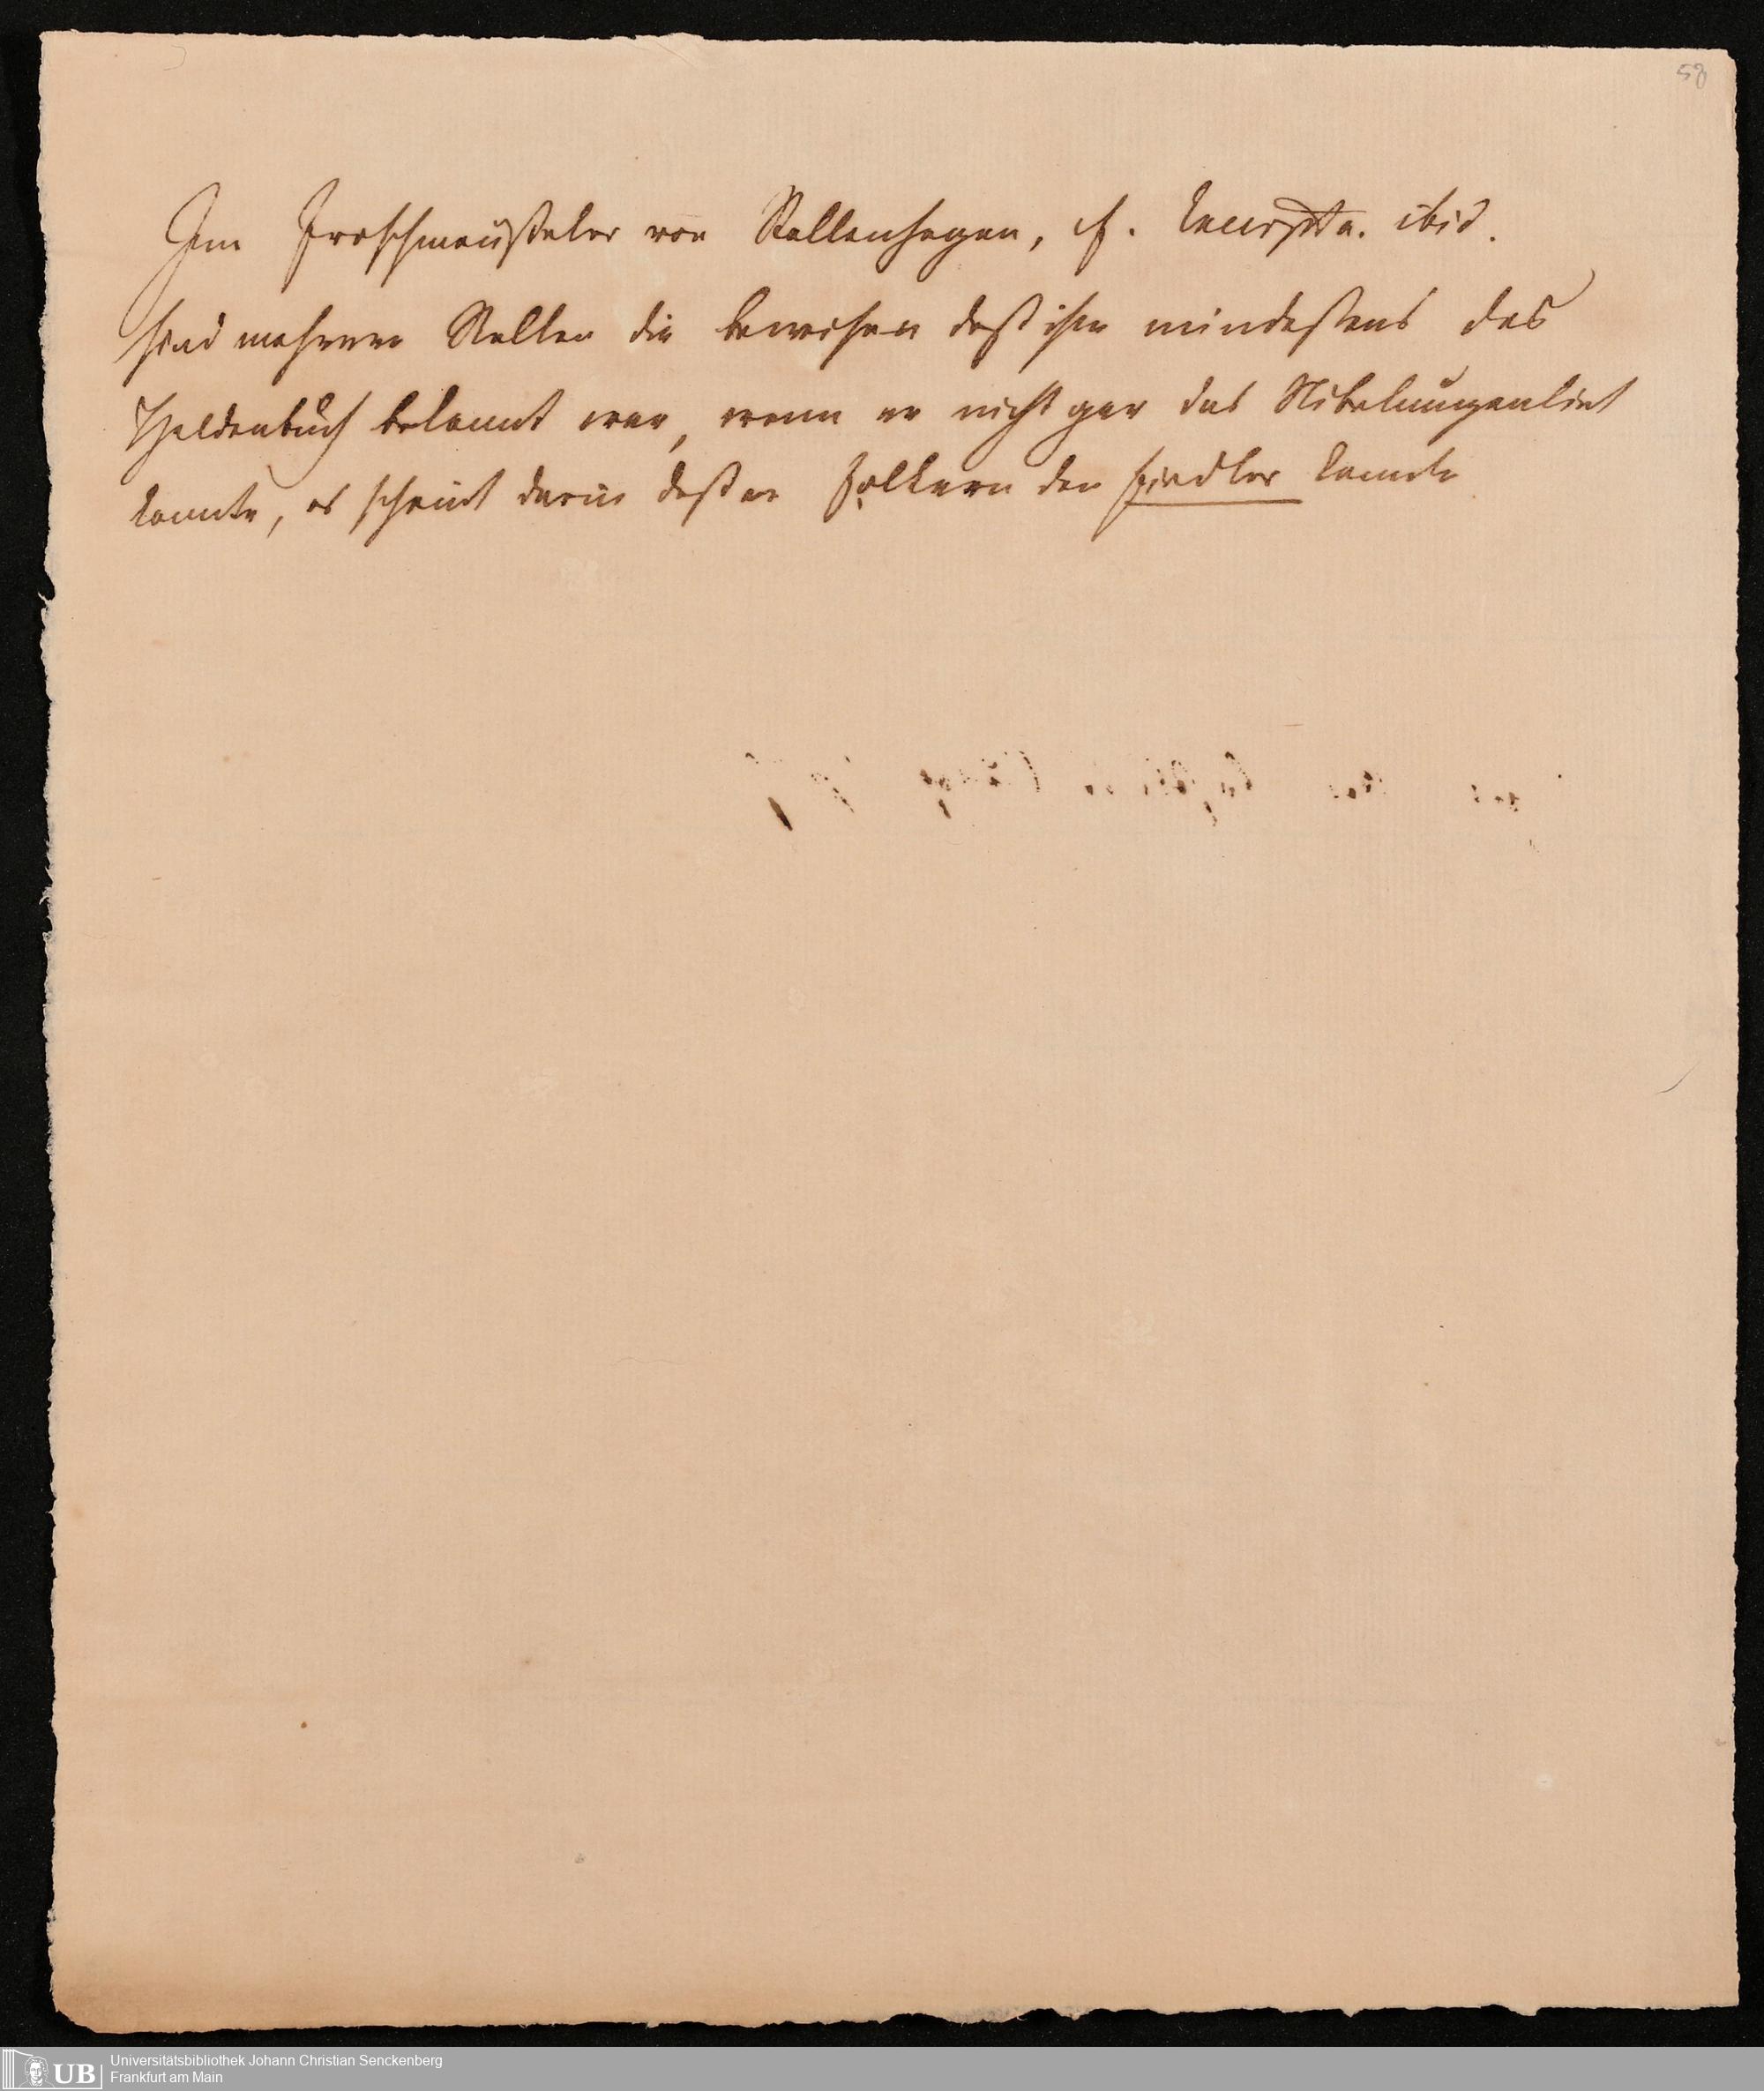 58
Im Froschmäuseler von Rollenhagen, cf. Excerpta. ibid.
sind mehrere Stellen die beweisen daß ihm mindestens das
Heldenbuch bekannt war, wenn er nicht gar das Nibelungenliet
kannte, es scheint darin daß er Folkern den fiedler kannte
UB
Universitätsbibliothek Johann Christian Senckenberg
Frankfurt am Main